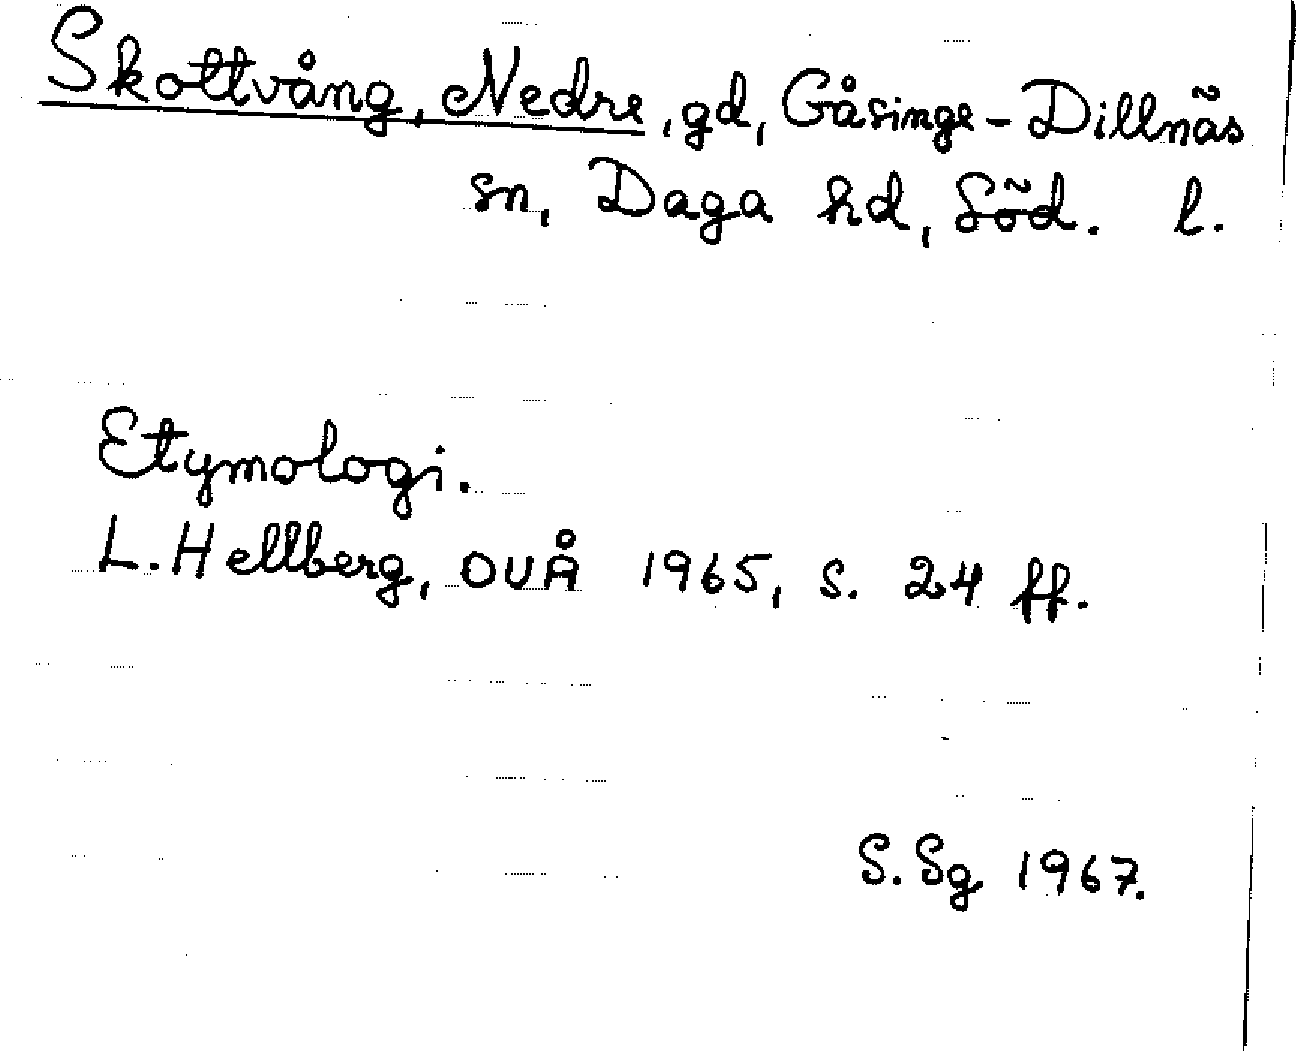 Skottvång, Nedre, gd, Gåsinge-Dillnäs
sn, Daga hd, Söd. l.
Etymologi.
L. Hellberg, OUÅ 1965, s. 24 ff.
S. Sg 1967.